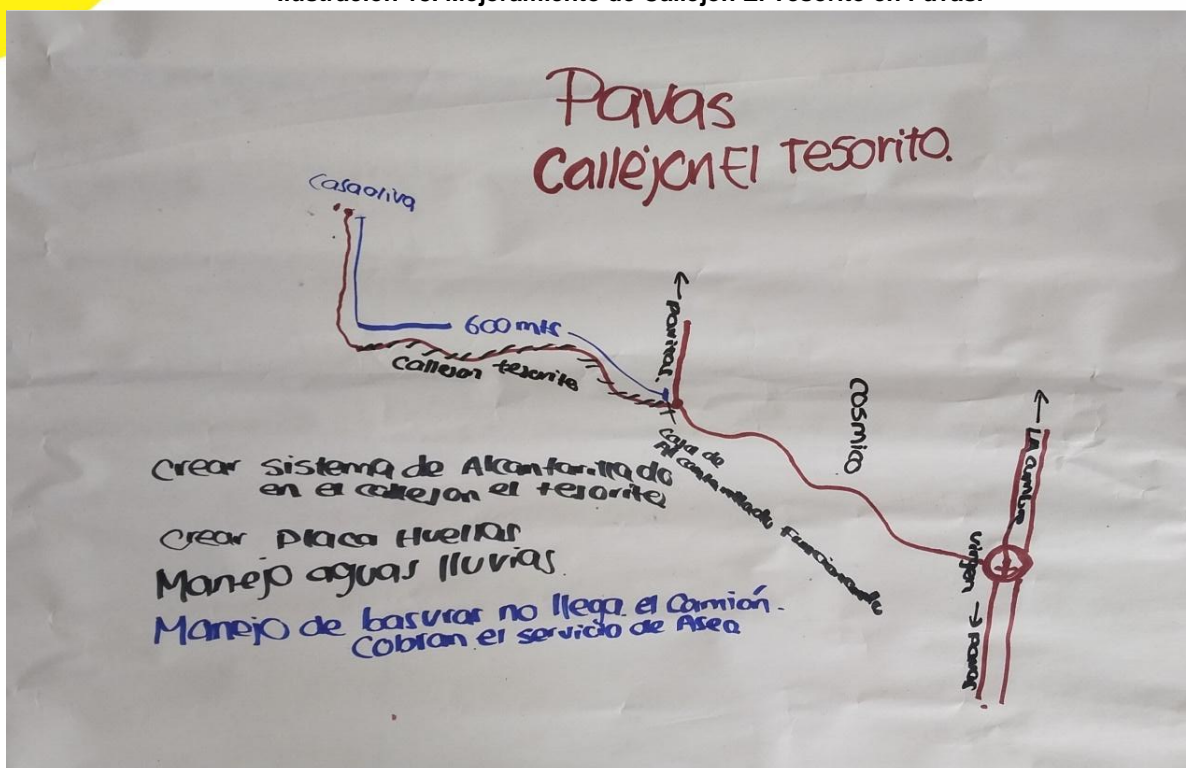 Pavas
Callejon El Tesorito.
Casaoliva
600 mts
Callejon tesorito
← Pavitas.
Caja de
Alcantarillado Funcionando
Cosmico
← LA cumbre
Virgen → Pavas
Crear sistema de Alcantarillado
en el callejon el tesorito
Crear Placa Huellas
Manejo aguas lluvias.
Manejo de basuras no llega el Camión.
Cobran el servicio de Aseo